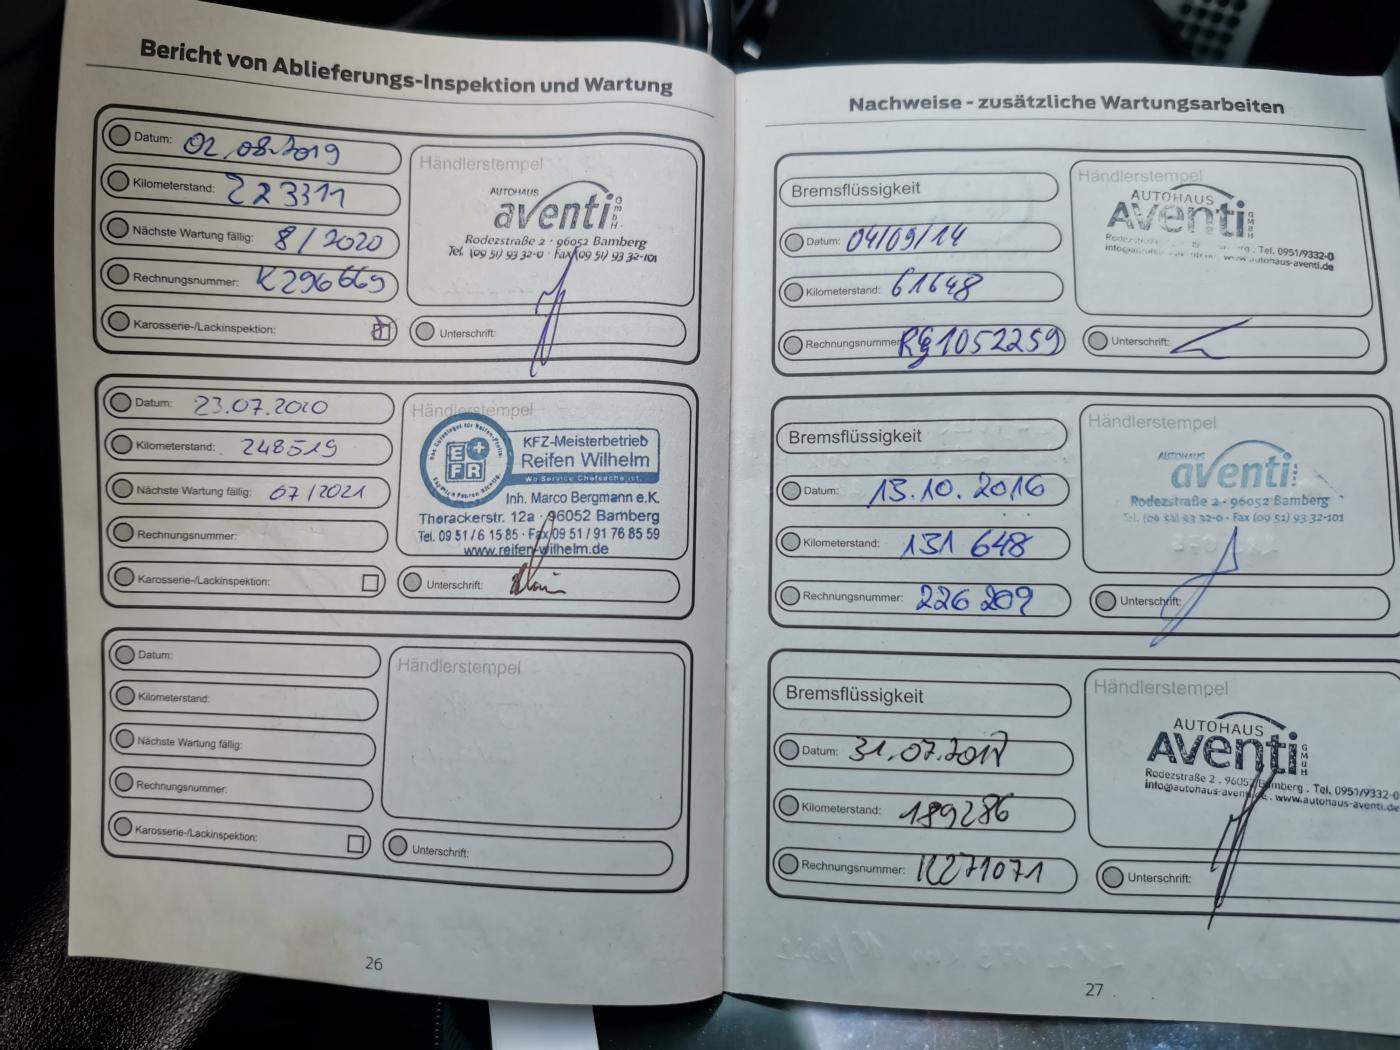 Bericht von Ablieferungs-Inspektion und Wartung
Datum: 02.08.2019
Kilometerstand: 223311
Nächste Wartung fällig: 8/2020
Rechnungsnummer: K296669
Karosserie-/Lackinspektion:
Händlerstempel
AUTOHAUS
aventi GmbH
Rodezstraße 2 · 96052 Bamberg
Tel. (09 51) 93 32-0 · Fax (09 51) 93 32-101
Unterschrift:
Datum: 23.07.2020
Kilometerstand: 248519
Nächste Wartung fällig: 07/2021
Rechnungsnummer:
Karosserie-/Lackinspektion:
Händlerstempel
EFR+
KFZ-Meisterbetrieb
Reifen Wilhelm
Wo Service Chefsache ist.
Inh. Marco Bergmann e.K.
Thorackerstr. 12a · 96052 Bamberg
Tel. 09 51 / 6 15 85 · Fax 09 51 / 91 76 85 59
www.reifen-wilhelm.de
Unterschrift:
Datum:
Kilometerstand:
Nächste Wartung fällig:
Rechnungsnummer:
Karosserie-/Lackinspektion:
Händlerstempel
Unterschrift:
26
Nachweise - zusätzliche Wartungsarbeiten
Bremsflüssigkeit
Datum: 04/09/14
Kilometerstand: 61648
Rechnungsnummer RG1052259
Händlerstempel
AUTOHAUS
Aventi GMBH
Tel. 0951/9332-0
www.autohaus-aventi.de
Unterschrift:
Bremsflüssigkeit
Datum: 13.10.2016
Kilometerstand: 131 648
Rechnungsnummer: 226 209
Händlerstempel
AUTOHAUS
aventi
Rodezstraße 2 · 96052 Bamberg
Tel. (09 51) 93 32-0 · Fax (09 51) 93 32-101
Unterschrift:
Bremsflüssigkeit
Datum: 31.07.2017
Kilometerstand: 189286
Rechnungsnummer: K271071
Händlerstempel
AUTOHAUS
Aventi GMBH
Rodezstraße 2 . 96052 Bamberg . Tel. 0951/9332-0
info@autohaus-aventi.de . www.autohaus-aventi.de
Unterschrift:
27